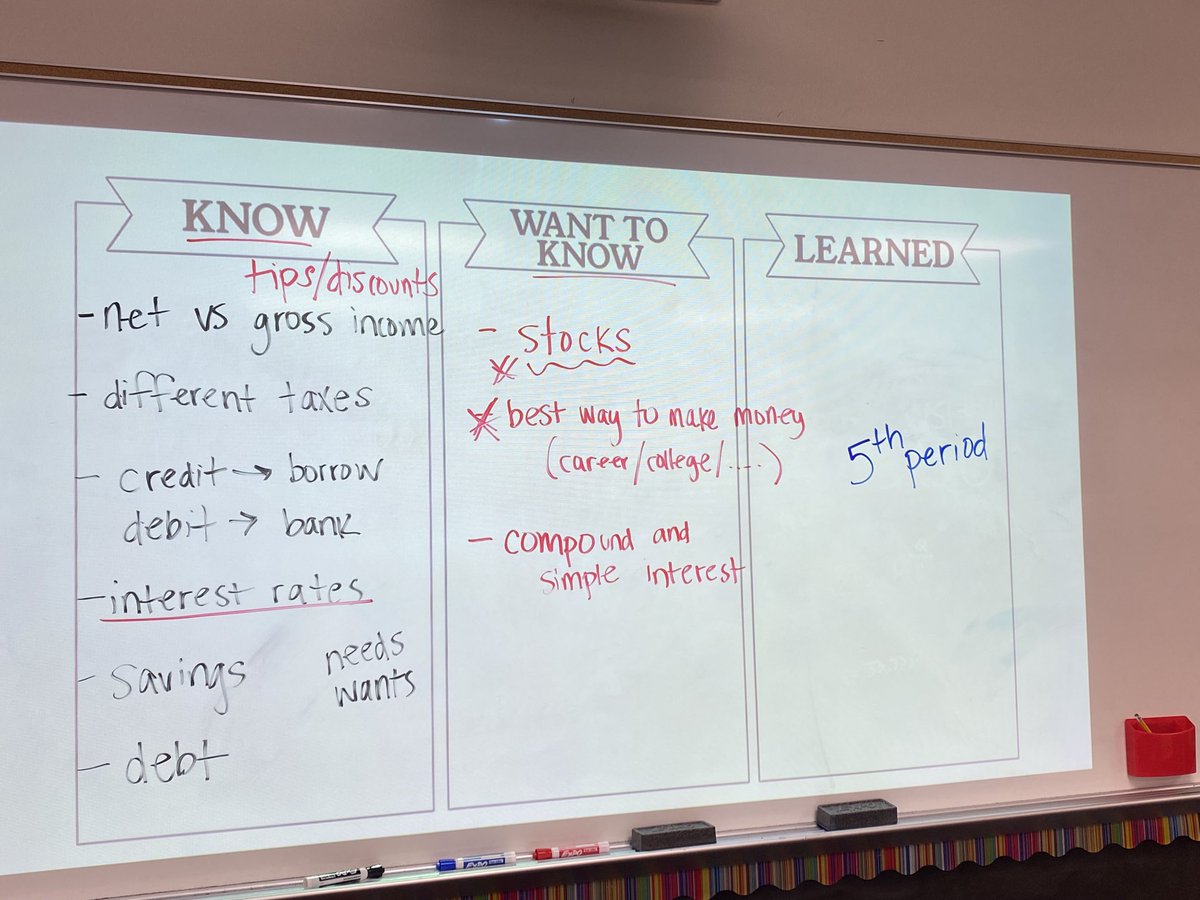 KNOW
tips/discounts
- net vs gross income
- different taxes
- credit → borrow
debit → bank
- interest rates
- savings
needs
wants
- debt
WANT TO
KNOW
- stocks
best way to make money
(career/college/....)
- compound and
simple interest
LEARNED
5th period
EXPO
EXPO